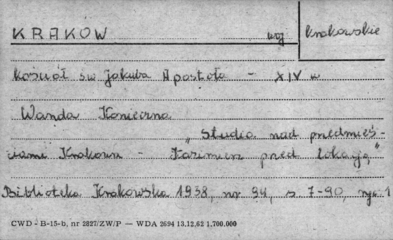 KRAKÓW woj krakowskie
Kościół św Jakuba Apostoła - XIV w
Wanda Konieczna
„Studia nad przedmieś-
ciami Krakowa - Kazimierz przed lokacją"
Biblioteka Krakowska 1938, nr 94, s 7-90, ryc 1
CWD - B-15-b, nr 2827/ZW/P — WDA 2694 13.12.62 1,700.000